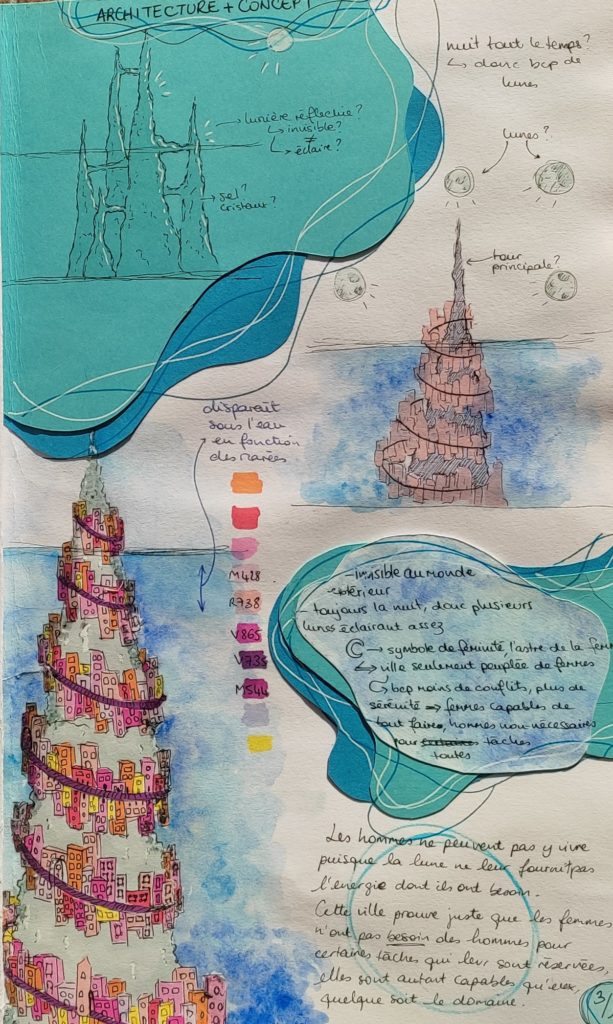 ARCHITECTURE + CONCEPT
nuit tout le temps?
↳ donc bcp de
lunes
lumière réfléchie?
↳ invisible?
≠
↳ éclaire?
sel?
cristaux?
lunes?
tour
principale?
disparaît
sous l'eau
en fonction
des marées
M428
R738
V865
V735
M544
- invisible au monde
extérieur
- toujours la nuit, donc plusieurs
lunes éclairant assez
→ symbole de féminité, l'astre de la femme
↳ ville seulement peuplée de femmes
↳ bcp moins de conflits, plus de
sérénité → femmes capables de
tout faire, hommes non nécessaires
pour certaines tâches
toutes
Les hommes ne peuvent pas y vivre
puisque la lune ne leur fournit pas
l'énergie dont ils ont besoin.
Cette ville prouve juste que les femmes
n'ont pas besoin des hommes pour
certaines tâches qui leur sont réservées,
elles sont autant capables qu'eux,
quelque soit le domaine.
3/